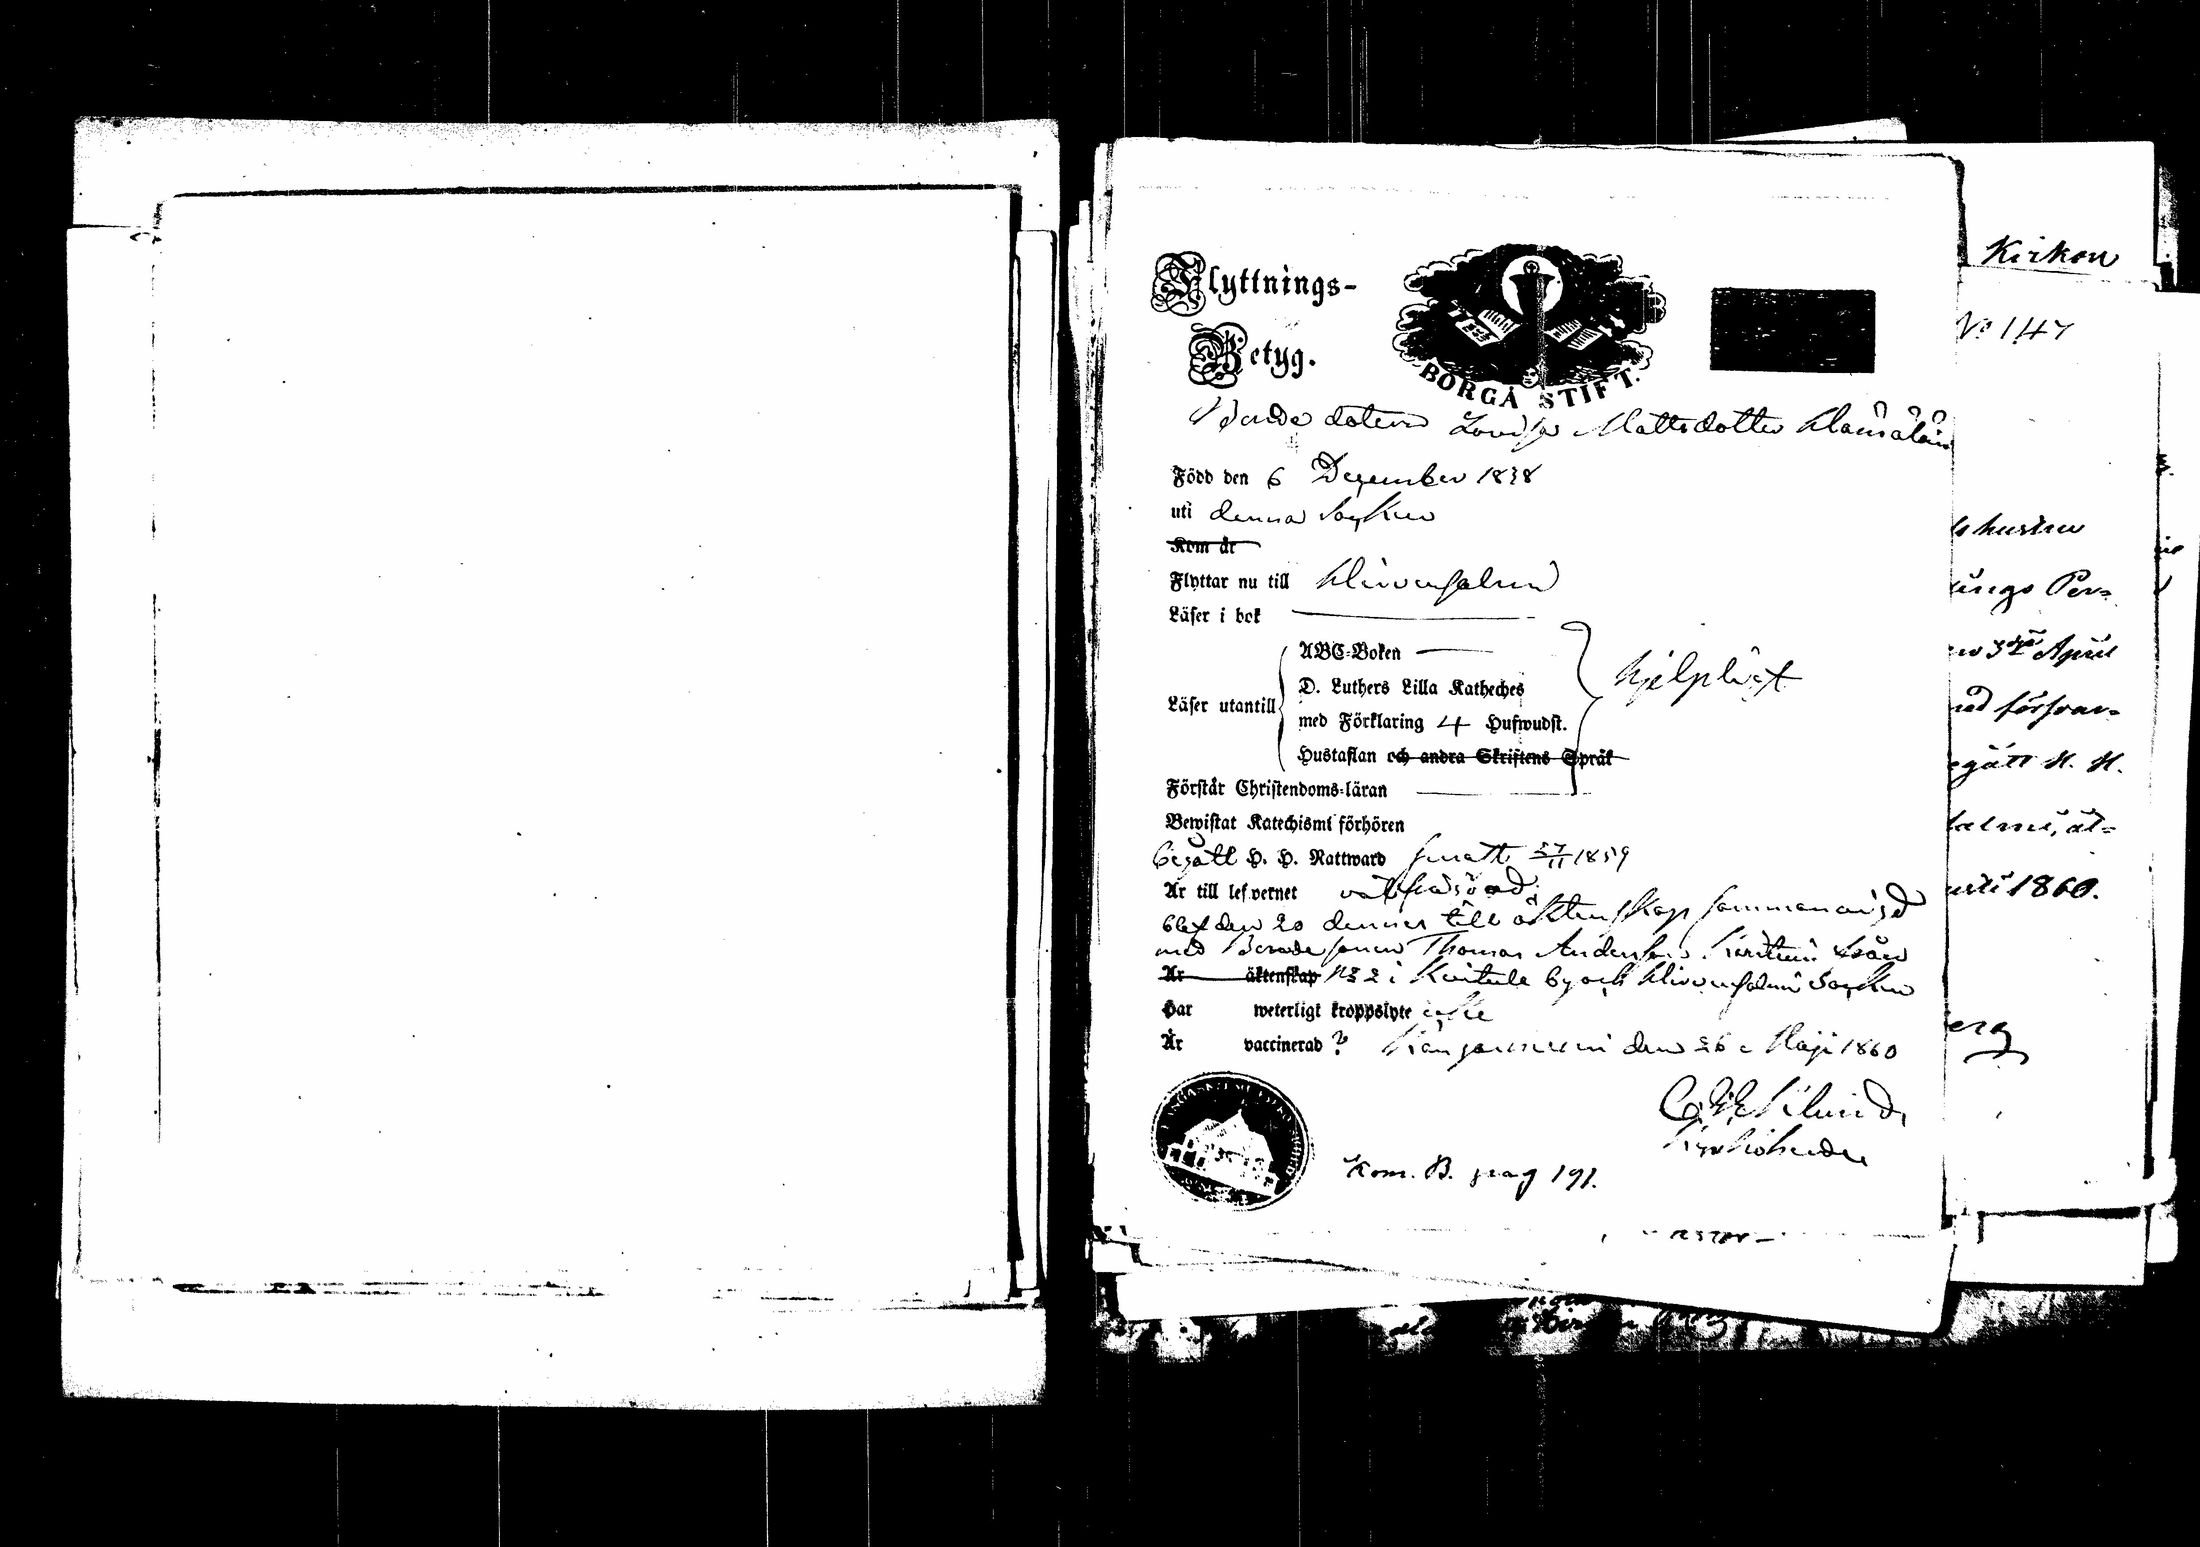 Flyttnings-
Betyg.
BORGÅ STIFT.
Bonde dotern Lovisa Mattsdotter
Född den 6 December 1838
uti denna Socken
Kom år
Flyttar nu till Hirvensalmi
Läser i bok
Läser utantill
ABC-Boken
D. Luthers Lilla Katheches
med Förklaring 4 Hufwudst.
Hustaflan och andra Skriftens Språk
hjelpligt
Förstår Christendoms-läran
Bewistat Katechismi förhören
begått H. H. Nattward senast 27/11 1859
Är till lefvernet välfräjdad.
blef den 20 dennes till äktenskap sammanvigd
med Bondesonen Thomas Andersson från
Är äktenskap № 2 i by och Hirvensalmi Socken
Har weterligt kroppslyte icke
Är vaccinerad? Kangasniemi den 26 Maji 1860
Kyrkoherde
Kom. B. pag 191.
Kirkon
No 147
hustru
Per-
April
försvar-
H. H.
1860.